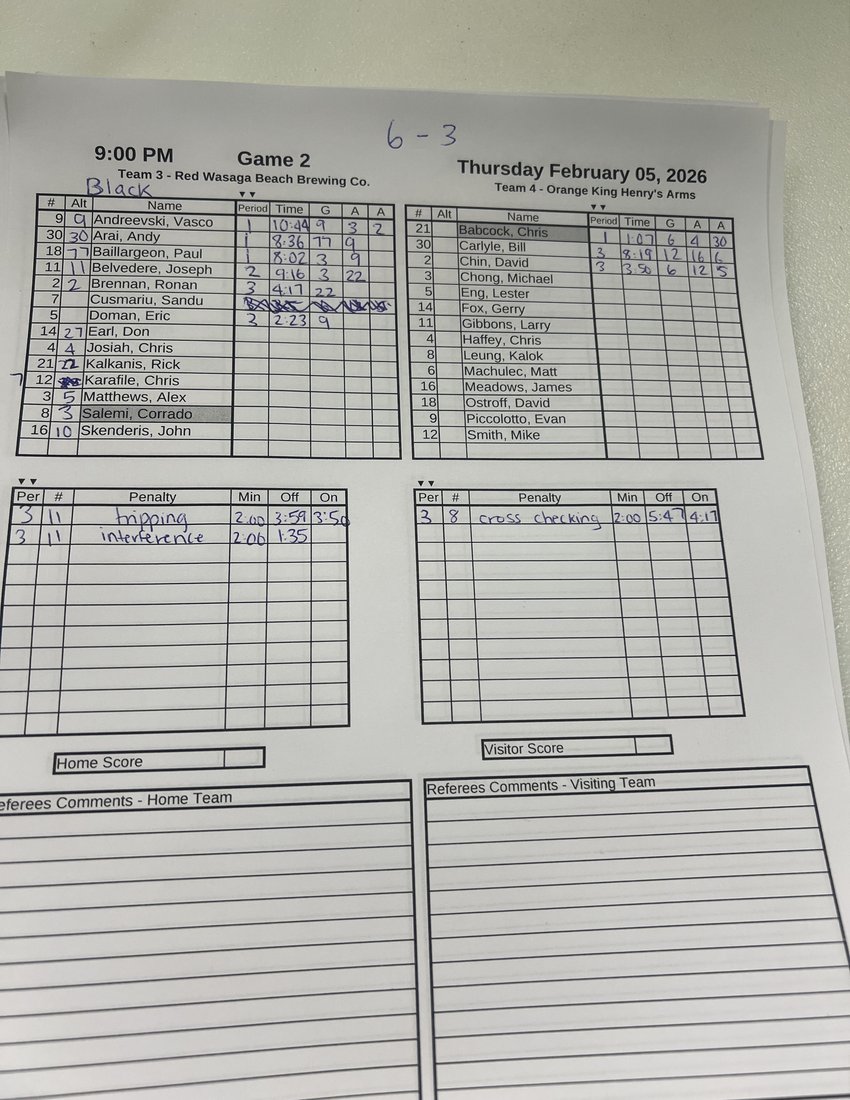 6 - 3
9:00 PM Game 2 Thursday February 05, 2026
Team 3 - Red Wasaga Beach Brewing Co. Team 4 - Orange King Henry's Arms
Black
# Alt Name Period Time G A A
9 9 Andreevski, Vasco 1 10:44 9 3 2
30 30 Arai, Andy 1 8:36 77 9
18 77 Baillargeon, Paul 1 8:02 3 9
11 11 Belvedere, Joseph 2 9:16 3 22
2 2 Brennan, Ronan 3 4:17 22
7 Cusmariu, Sandu
5 Doman, Eric 3 2:23 9
14 27 Earl, Don
4 4 Josiah, Chris
21 22 Kalkanis, Rick
7 12 Karafile, Chris
3 5 Matthews, Alex
8 3 Salemi, Corrado
16 10 Skenderis, John
# Alt Name Period Time G A A
21 Babcock, Chris 1 1:07 6 4 30
30 Carlyle, Bill 3 8:19 12 16 6
2 Chin, David 3 3:50 6 12 5
3 Chong, Michael
5 Eng, Lester
14 Fox, Gerry
11 Gibbons, Larry
4 Haffey, Chris
8 Leung, Kalok
6 Machulec, Matt
16 Meadows, James
18 Ostroff, David
9 Piccolotto, Evan
12 Smith, Mike
Per # Penalty Min Off On
3 11 tripping 2:00 3:59 3:50
3 11 interference 2:00 1:35
Per # Penalty Min Off On
3 8 cross checking 2:00 5:47 4:17
Home Score
Visitor Score
eferees Comments - Home Team
Referees Comments - Visiting Team